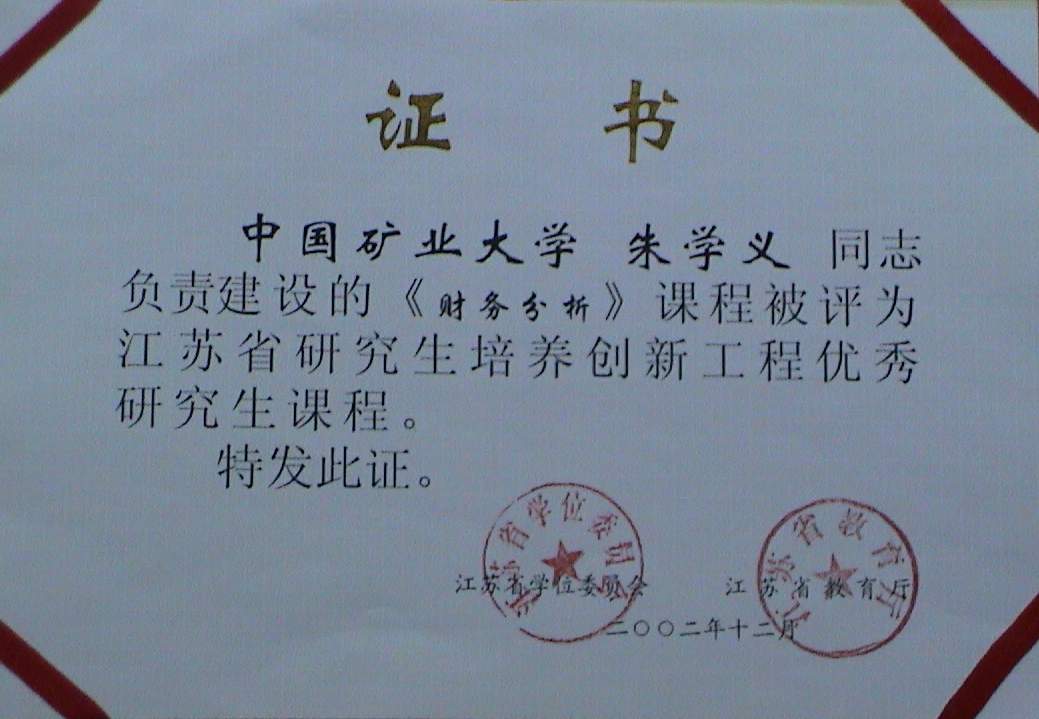 证书
中国矿业大学 朱学义 同志
负责建设的《财务分析》课程被评为
江苏省研究生培养创新工程优秀
研究生课程。
特发此证。
江苏省学位委员会
江苏省教育厅
江苏省学位委员会 江苏省教育厅
二〇〇二年十二月